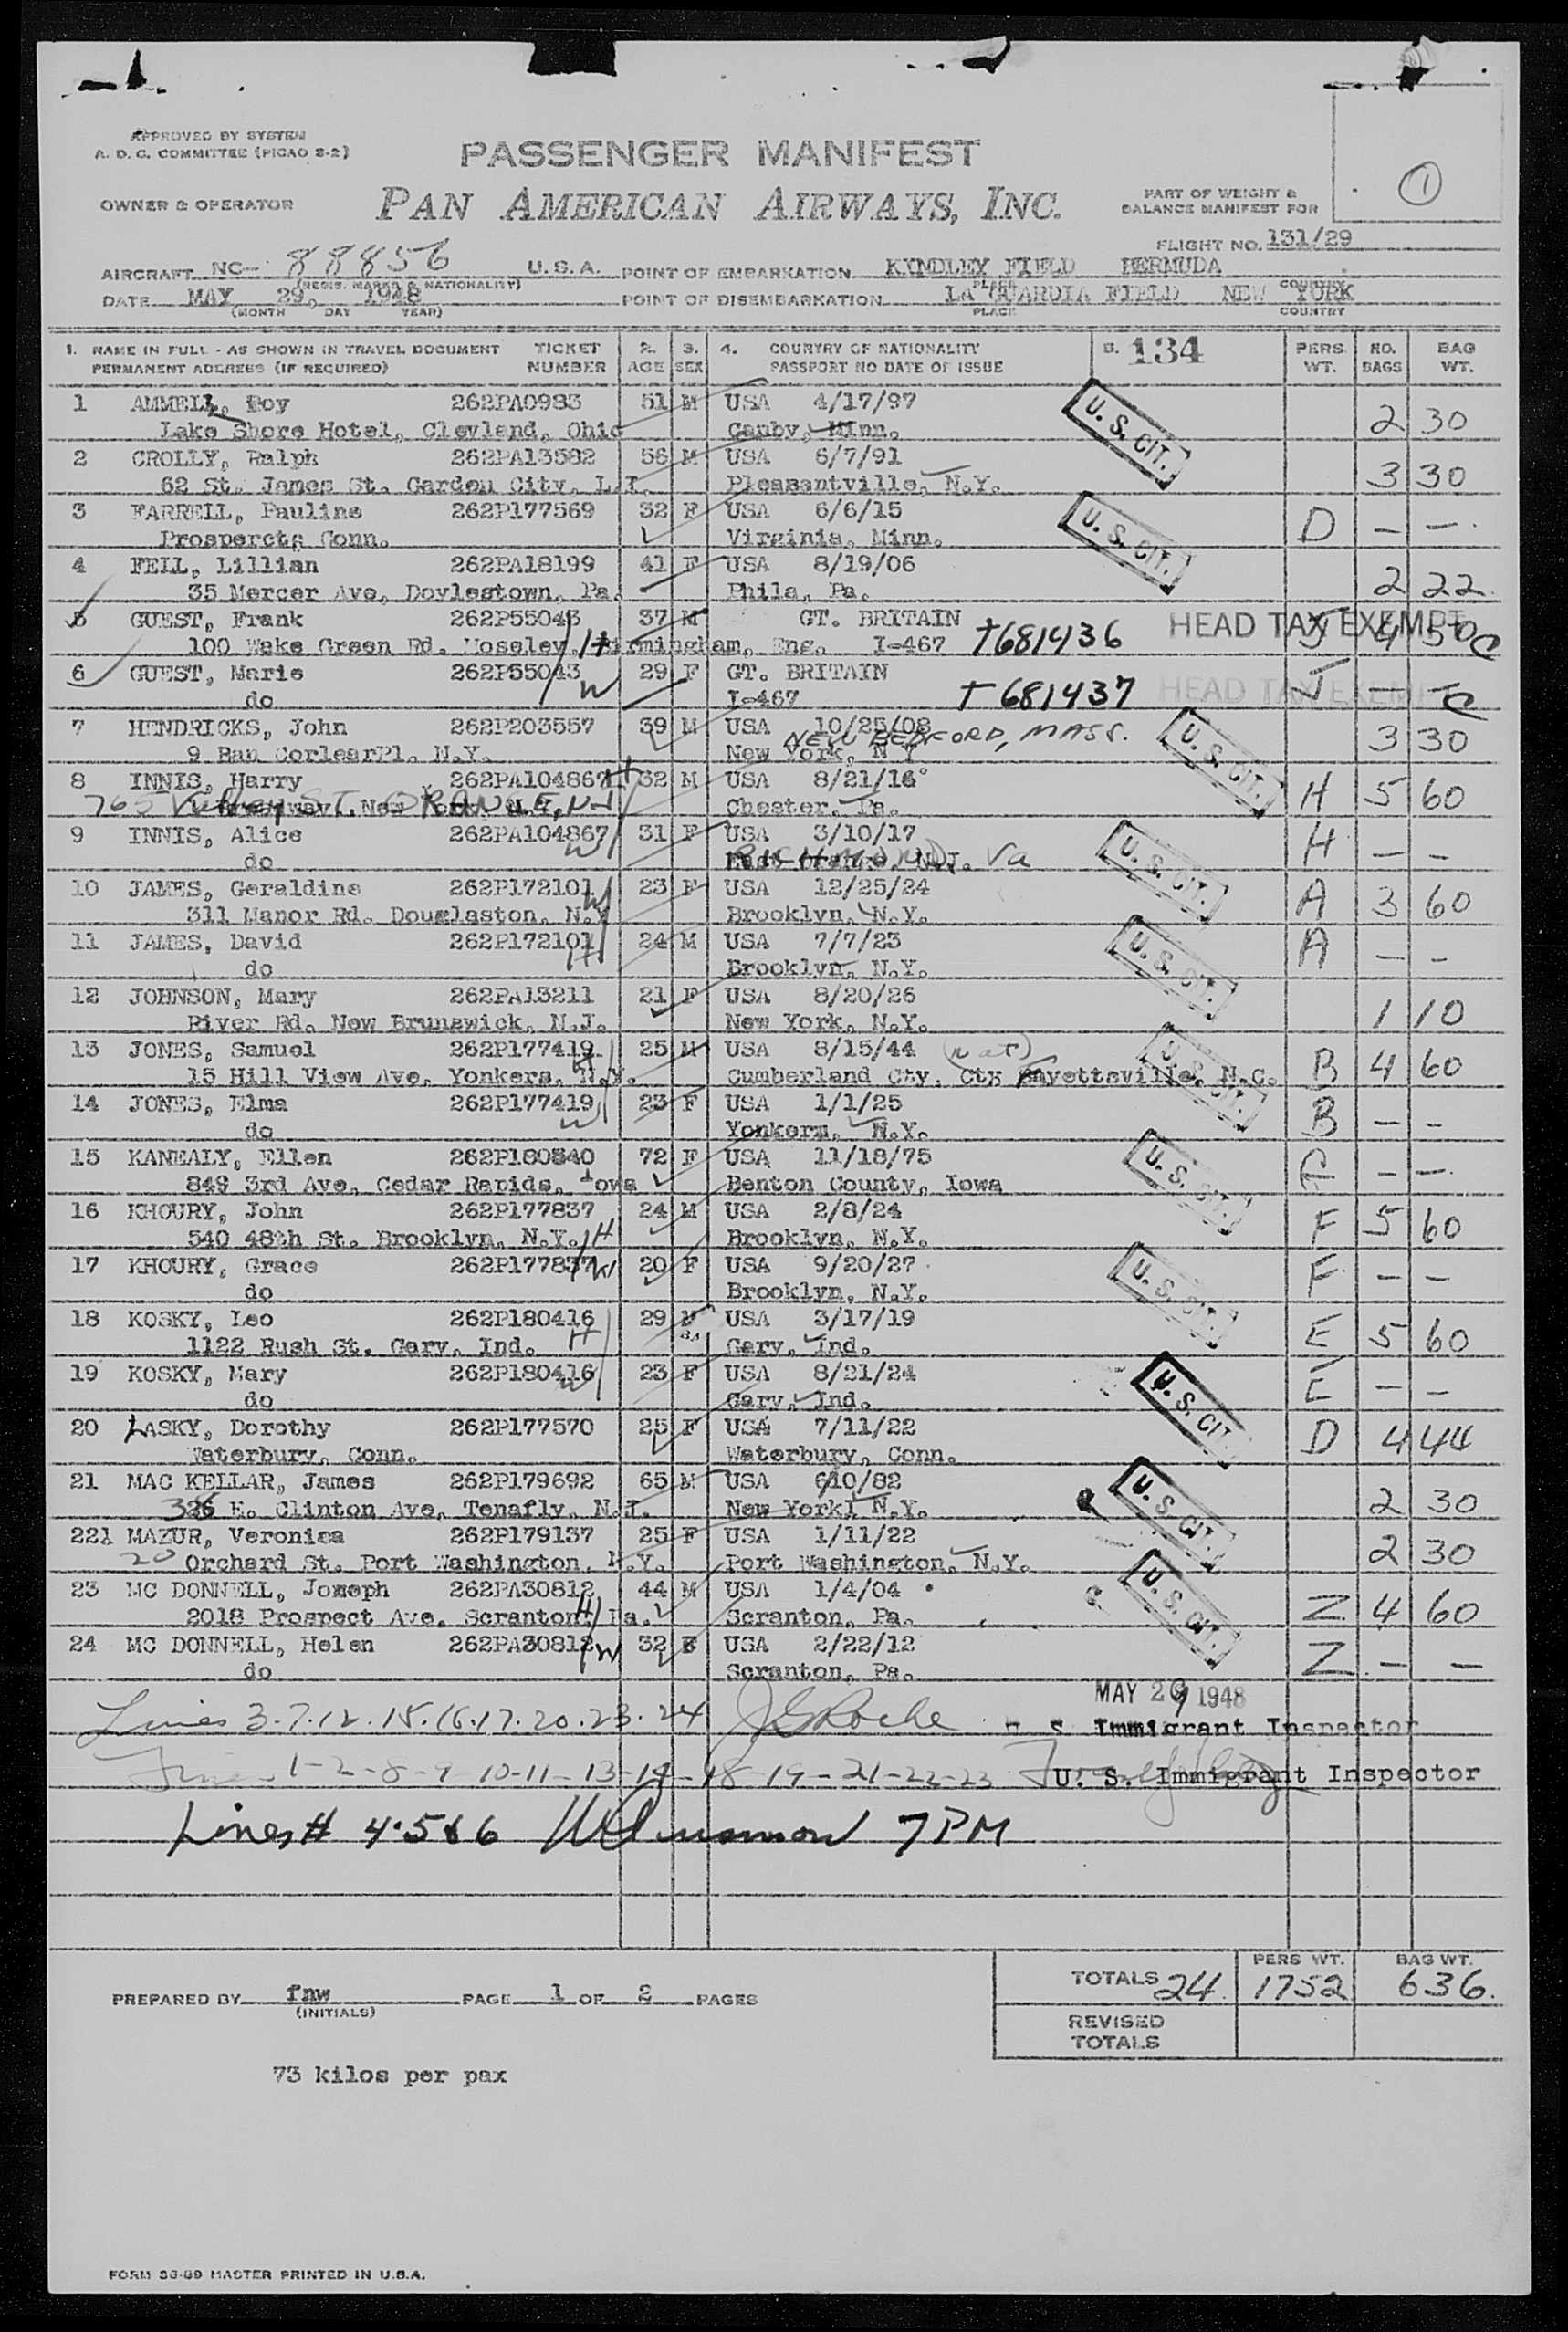 APPROVED BY SYSTEM
A. D. C. COMMITTEE (PICAO S-2)
PASSENGER MANIFEST
1
OWNER & OPERATOR
PAN AMERICAN AIRWAYS, INC.
PART OF WEIGHT &
BALANCE MANIFEST FOR
FLIGHT NO. 131/29
AIRCRAFT NC- 88856 U. S. A. POINT OF EMBARKATION KINDLEY FIELD BERMUDA
(REGIS. MARKS & NATIONALITY) PLACE COUNTRY
DATE MAY 29, 1948 POINT OF DISEMBARKATION LA GUARDIA FIELD NEW YORK
(MONTH DAY YEAR) PLACE COUNTRY
1. NAME IN FULL - AS SHOWN IN TRAVEL DOCUMENT TICKET 2. 3. 4. COUNTRY OF NATIONALITY 5. 134 PERS NO. BAG
PERMANENT ADDRESS (IF REQUIRED) NUMBER AGE SEX PASSPORT NO DATE OF ISSUE WT. BAGS WT.
1 AMMELL, Roy 262PA0983 51 M USA 4/17/97 U. S. CIT. 2 30
Lake Shore Hotel, Clevland, Ohio Canby, Minn.
2 CROLLY, Ralph 262PA13582 56 M USA 6/7/91 3 30
62 St. James St. Garden City, L.I. Pleasantville, N.Y.
3 FARRELL, Pauline 262P177569 32 F USA 6/6/15 U. S. CIT. D — —
Prospercts Conn. Virginia, Minn.
4 FELL, Lillian 262PA18199 41 F USA 8/19/06 2 22
35 Mercer Ave, Doylestown, Pa. Phila, Pa.
5 GUEST, Frank 262P55043 37 M GT. BRITAIN HEAD TAX EXEMPT J 4 50
100 Wake Green Rd. Moseley, Birmingham, Eng. I-467 T681436
6 GUEST, Marie 262P55043 W 29 F GT. BRITAIN T681437 HEAD TAX EXEMPT J — —
do I-467
7 HENDRICKS, John 262P203557 39 M USA 10/25/08 U. S. CIT. 3 30
9 Ban CorlearPl, N.Y. New York, N Y NEW BEDFORD, MASS.
8 INNIS, Harry 262PA104867 H 32 M USA 8/21/16 H 5 60
765 Valley ST. ORANGE, NJ Chester, Pa.
9 INNIS, Alice 262PA104867 W 31 F USA 3/10/17 U. S. CIT. H — —
do RICHMOND, Va
10 JAMES, Geraldine 262P172101 W 23 F USA 12/25/24 A 3 60
311 Manor Rd. Douglaston, N.Y Brooklyn, N.Y.
11 JAMES, David 262P172101 H 24 M USA 7/7/23 U. S. CIT. A — —
do Brooklyn, N.Y.
12 JOHNSON, Mary 262PA13211 21 F USA 8/20/26 1 10
River Rd. New Brunswick, N.J. New York, N.Y.
13 JONES, Samuel 262P177419 H 25 M USA 8/15/44 (nat) U. S. CIT. B 4 60
15 Hill View Ave, Yonkers, N.Y. Cumberland Cty. Ctx Fayettsville, N.C.
14 JONES, Elma 262P177419 W 23 F USA 1/1/25 B — —
do Yonkers, N.Y.
15 KANEALY, Ellen 262P180840 72 F USA 11/18/75 U. S. CIT. — —
849 3rd Ave, Cedar Rapids, Iowa Benton County, Iowa
16 KHOURY, John 262P177837 24 M USA 2/8/24 F 5 60
540 48th St. Brooklyn, N.Y. H Brooklyn, N.Y.
17 KHOURY, Grace 262P177837 W 20 F USA 9/20/27 U. S. CIT. F — —
do Brooklyn, N.Y.
18 KOSKY, Leo 262P180416 H 29 M USA 3/17/19 E 5 60
1122 Rush St. Gary, Ind. Gary, Ind.
19 KOSKY, Mary 262P180416 W 23 F USA 8/21/24 U. S. CIT. E — —
do Gary, Ind.
20 LASKY, Dorothy 262P177570 25 F USA 7/11/22 D 4 44
Waterbury, Conn. Waterbury, Conn.
21 MAC KELLAR, James 262P179692 65 M USA 6/10/82 U. S. CIT. 2 30
326 E. Clinton Ave, Tenafly, N.J. New York, N.Y.
22 MAZUR, Veronica 262P179137 25 F USA 1/11/22 2 30
20 Orchard St. Port Washington, N.Y. Port Washington, N.Y.
23 MC DONNELL, Joseph 262PA30812 44 M USA 1/4/04 U. S. CIT. Z 4 60
2018 Prospect Ave. Scranton, Pa. H Scranton, Pa.
24 MC DONNELL, Helen 262PA30812 W 32 F USA 2/22/12 Z — —
do Scranton, Pa.
MAY 29 1948
Lines 3.7.12.15.16.17.20.23.24 J E Roche U S Immigrant Inspector
Lines 1-2-8-9 10-11-13-14-18-19-21-22-23 U. S. Immigrant Inspector
Lines # 4·5&6 7 PM
PERS WT. BAG WT.
TOTALS 24. 1752 636.
PREPARED BY fnw PAGE 1 OF 2 PAGES
(INITIALS)
REVISED
TOTALS
73 kilos per pax
FORM 36-89 MASTER PRINTED IN U.S.A.